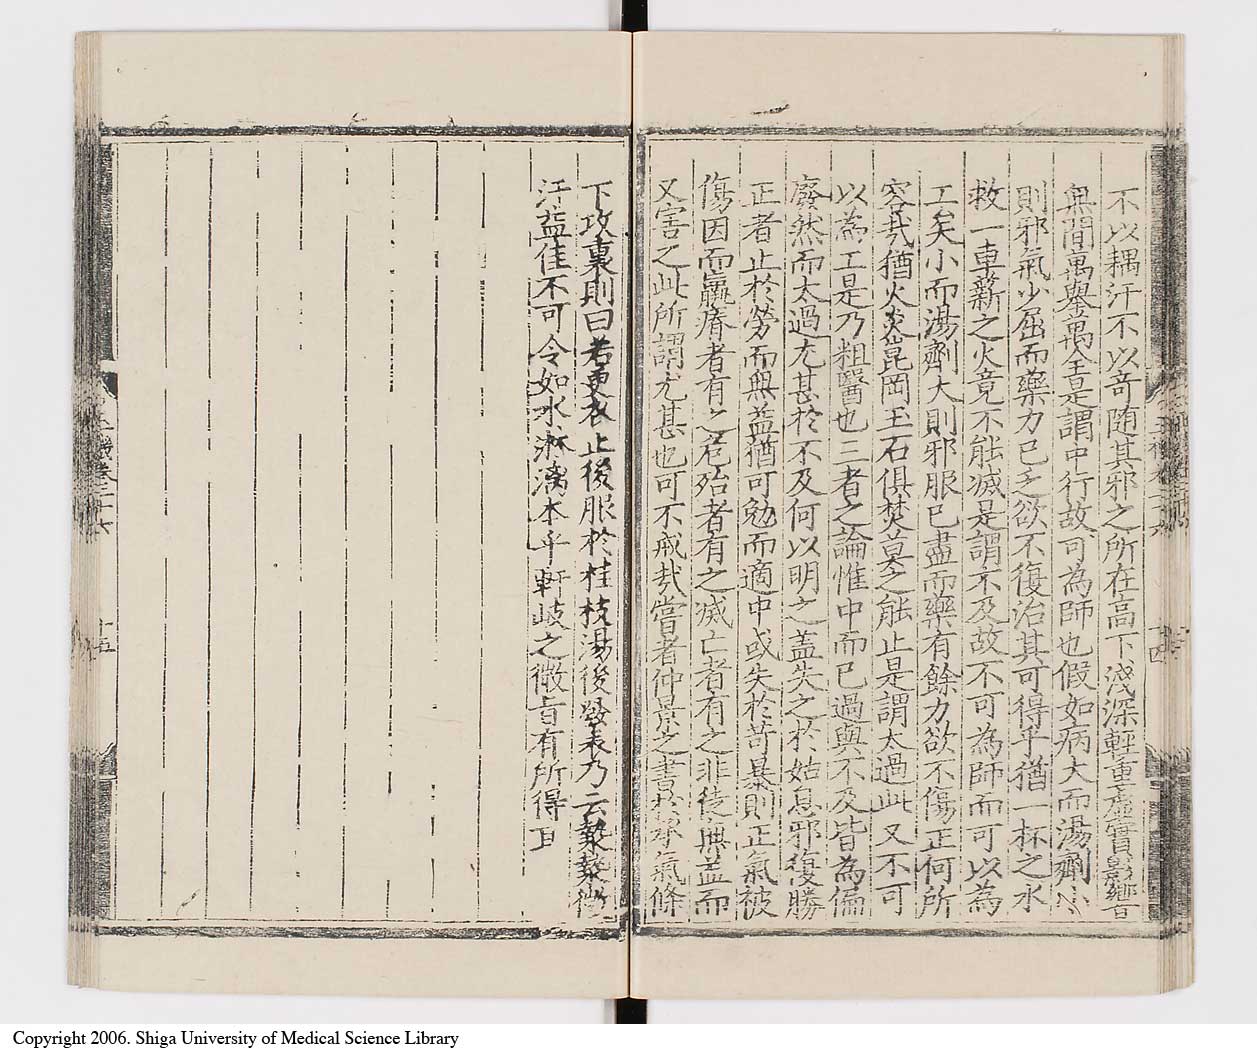 不以耦汗不以奇随其邪之所在高下淺深輕重虛實影響
無間萬舉萬全是謂中行故可為師也假如病大而湯劑小
則邪氣少屈而藥力已乏欲不復治其可得乎猶一杯之水
救一車薪之火竟不能滅是謂不及故不可為師而可以為
工矣小而湯劑大則邪服已盡而藥有餘力欲不傷正何所
容哉猶火炎崑岡玉石俱焚莫之能止是謂太過此又不可
以為工是乃粗醫也三者之論惟中而已過與不及皆為偏
廢然而太過尤甚於不及何以明之盖失之於姑息邪復勝
正者止於勞而無益猶可勉而適中或失於苛暴則正氣被
傷因而羸瘠者有之危殆者有之滅亡者有之非徒無益而
又害之此所謂尤甚也可不戒哉嘗者仲景之書於承氣條
下攻裏則曰若更衣止後服於桂枝湯後發表乃云漐漐微
汗益佳不可令如水淋漓本乎軒岐之微旨有所得耳
卷二十六
十五
十四
Copyright 2006. Shiga University of Medical Science Library